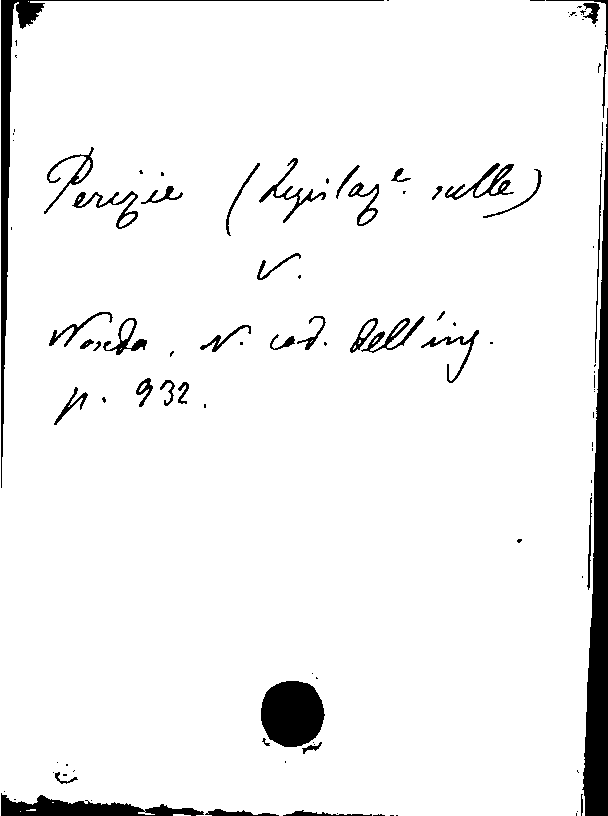 Perizie (Legislaz.e sulle)
V.
Noseda, N. cod. dell'ing.
p. 932.